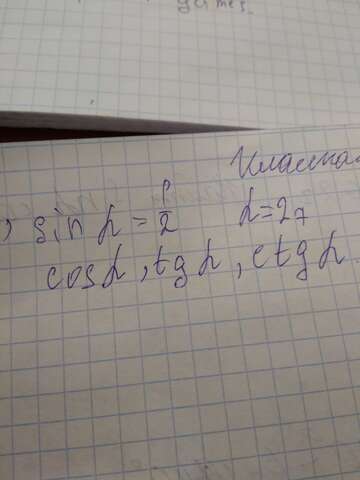 games.
Классная
sin α = 1/2 α = 2ч
cos α, tg α, ctg α